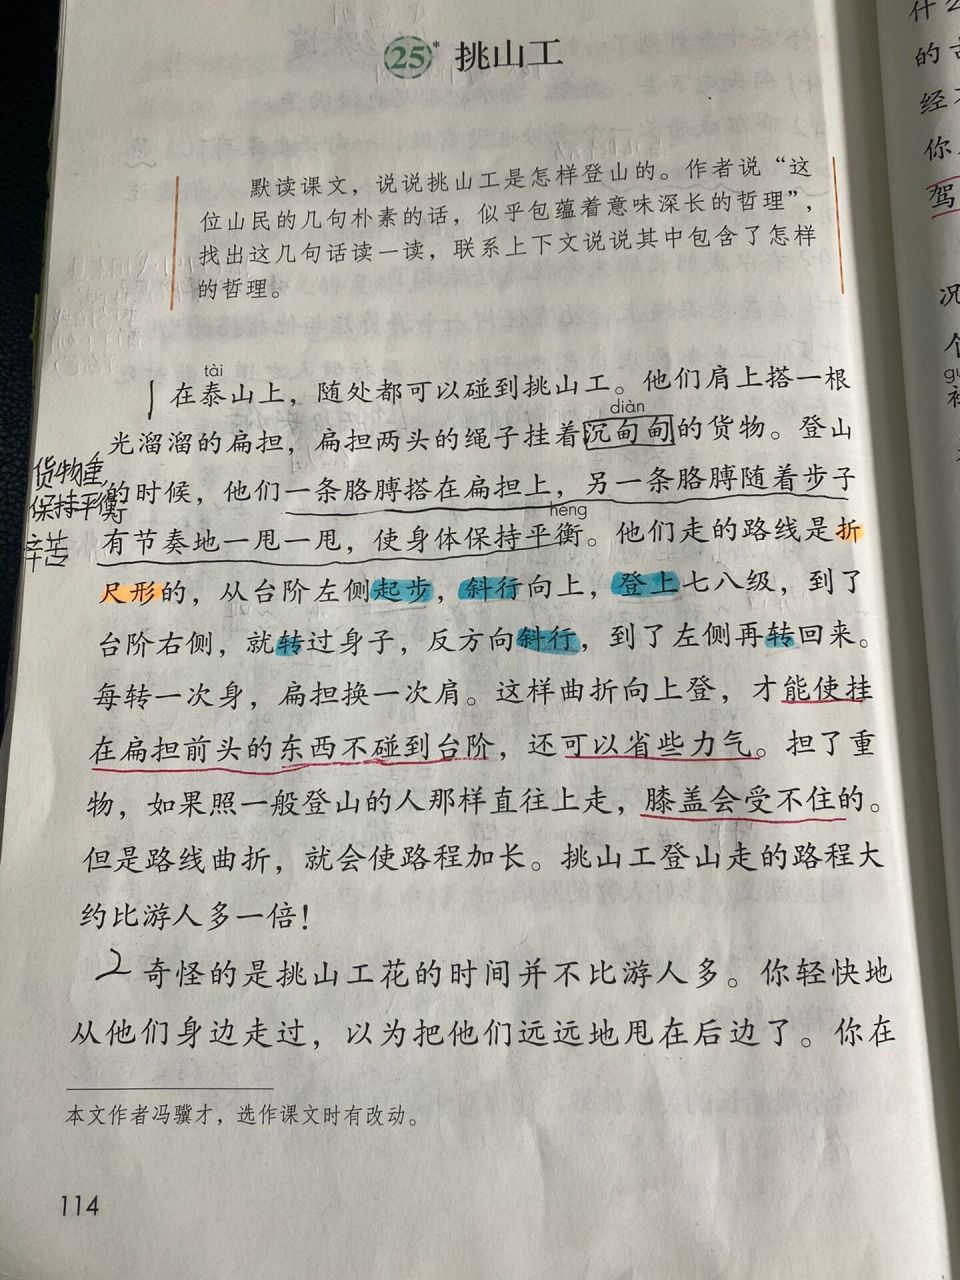 25* 挑山工
默读课文，说说挑山工是怎样登山的。作者说“这
位山民的几句朴素的话，似乎包蕴着意味深长的哲理”，
找出这几句话读一读，联系上下文说说其中包含了怎样
的哲理。
tài
1 在泰山上，随处都可以碰到挑山工。他们肩上搭一根
diàn
光溜溜的扁担，扁担两头的绳子挂着沉甸甸的货物。登山
货物重，
保持平衡
辛苦
的时候，他们一条胳膊搭在扁担上，另一条胳膊随着步子
héng
有节奏地一甩一甩，使身体保持平衡。他们走的路线是折
尺形的，从台阶左侧起步，斜行向上，登上七八级，到了
台阶右侧，就转过身子，反方向斜行，到了左侧再转回来。
每转一次身，扁担换一次肩。这样曲折向上登，才能使挂
在扁担前头的东西不碰到台阶，还可以省些力气。担了重
物，如果照一般登山的人那样直往上走，膝盖会受不住的。
但是路线曲折，就会使路程加长。挑山工登山走的路程大
约比游人多一倍！
2 奇怪的是挑山工花的时间并不比游人多。你轻快地
从他们身边走过，以为把他们远远地甩在后边了。你在
本文作者冯骥才，选作课文时有改动。
114
什么
的
经
你
驾
况
个